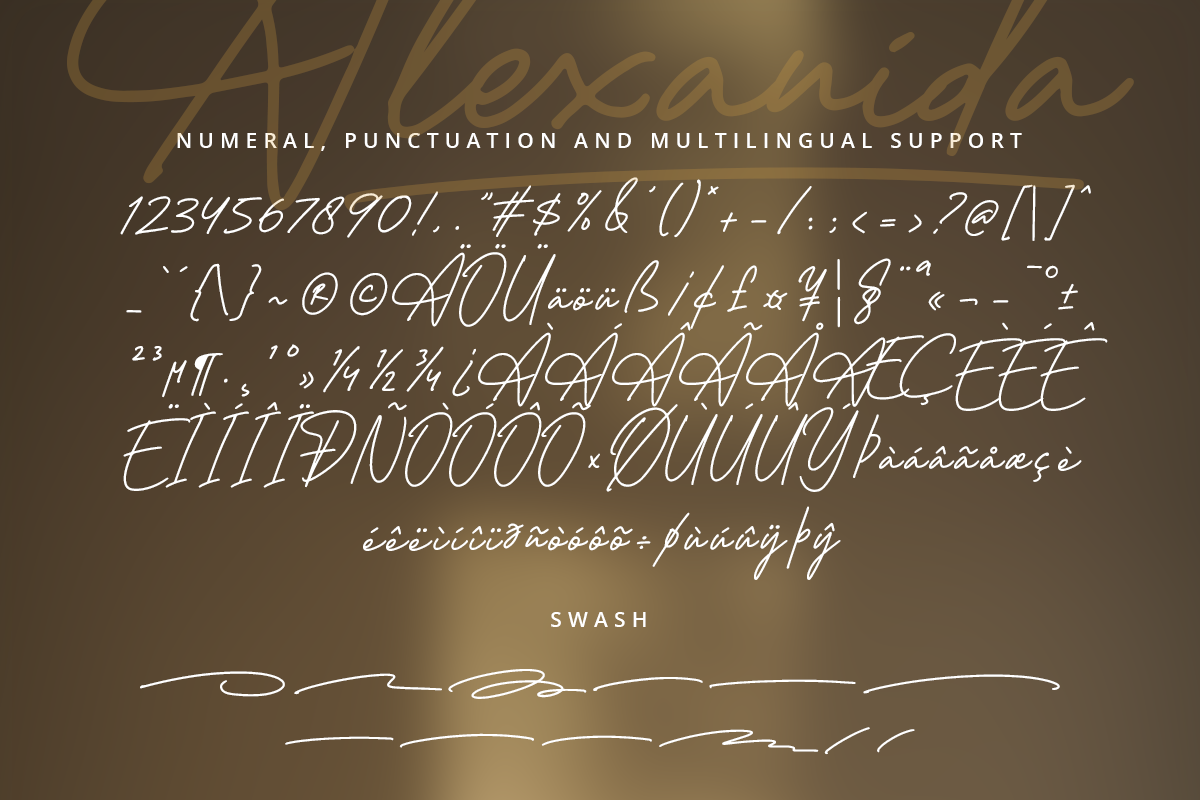 Alexanida
NUMERAL, PUNCTUATION AND MULTILINGUAL SUPPORT
1234567890!,."#$%&'()*+-/:;<=>?@[\]^
_`´{\}~®©ÄÖÜäöüß¡¢£¤¥¦§¨ª«¬-¯°±
²³µ¶·¸¹º»¼½¾¿ÀÁÂÃÅÆÇÈÉÊ
ËÌÍÎÏÐÑÒÓÔÕ×ØÙÚÛÝÞàáâãåæçè
éêëìíîïðñòóôõ÷øùúûÿþŷ
SWASH